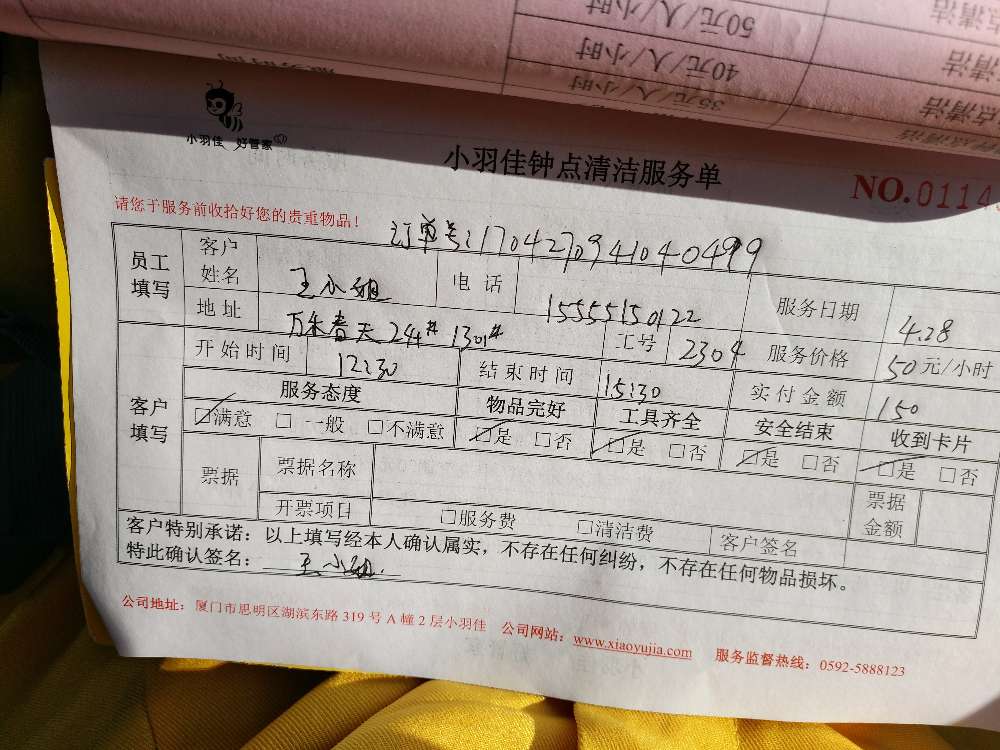 50元/人/小时
点清洁
40元/人/小时
点清洁
35元/人/小时
点清洁
小羽佳 好管家
小羽佳钟点清洁服务单
NO.0114
请您于服务前收拾好您的贵重物品!
订单号:1704270941040499
员工填写 客户姓名 王小姐 电话 15555150122 服务日期 4.28
地址 万禾春天 244# 1301# 工号 2304 服务价格 50元/小时
客户填写 开始时间 12:30 结束时间 15:30 实付金额 150
服务态度 物品完好 工具齐全 安全结束 收到卡片
☑满意 □一般 □不满意 ☑是 □否 ☑是 □否 ☑是 □否 ☑是 □否
票据 票据名称 票据金额
开票项目 □服务费 □清洁费 客户签名
客户特别承诺:以上填写经本人确认属实,不存在任何纠纷,不存在任何物品损坏。
特此确认签名: 王小姐
公司地址:厦门市思明区湖滨东路 319 号 A 幢 2 层小羽佳 公司网站:www.xiaoyujia.com 服务监督热线:0592-5888123